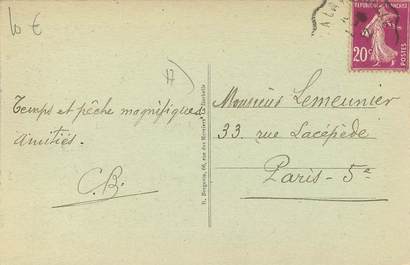 10 €
17
Temps et pêche magnifiques
Amitiés.
C.B.
Monsieur Lemeunier
33, rue Lacépède
Paris - 5e
REPUBLIQUE FRANÇAISE
20c
POSTES
D. Bergevin, 66, rue des Merciers, La Rochelle